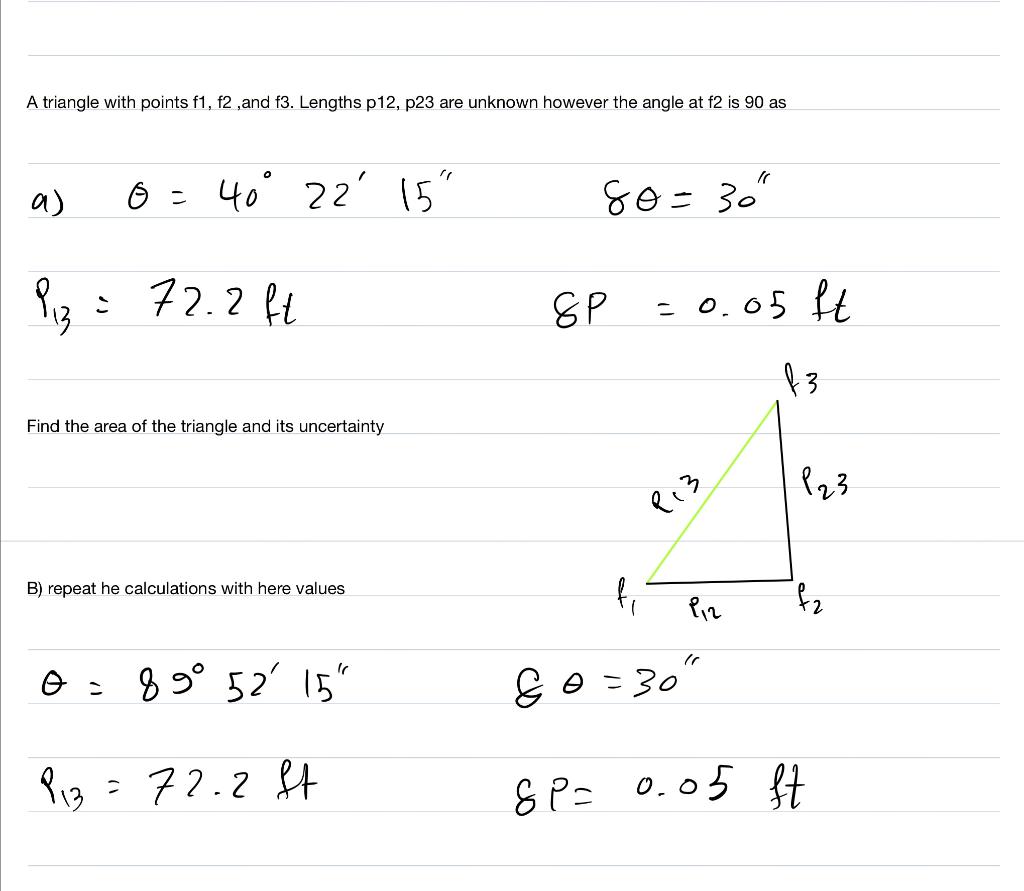 A triangle with points f1, f2 ,and f3. Lengths p12, p23 are unknown however the angle at f2 is 90 as
a) θ = 40° 22′ 15″ δθ = 30″
P13 = 72.2 ft δP = 0.05 ft
f3
Find the area of the triangle and its uncertainty
P13 P23
B) repeat he calculations with here values
f1 P12 f2
θ = 89° 52′ 15″ δθ = 30″
P13 = 72.2 ft δP = 0.05 ft